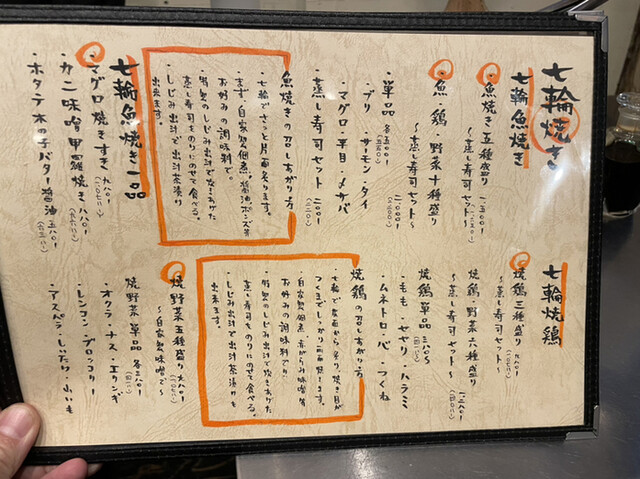 七輪焼き
七輪魚焼き
魚焼き五種盛り 一五〇〇
〜蒸し寿司セット〜
魚・鶏・野菜十種盛り 二〇〇〇
〜蒸し寿司セット〜
・単品 各五〇〇
・ブリ ・サーモン ・タイ
・マグロ ・平目 ・〆サバ
・蒸し寿司セット 二〇〇
魚焼きの召しあがり方
・七輪でさっと片面炙ります。
・まず自家製佃煮、醤油ポンズ等
お好みの調味料で。
・特製のしじみ出汁で炊きあげた
蒸し寿司をのりにのせて食べる。
・しじみ出汁で出汁茶漬り
出来ます。
七輪魚焼き一品
・マグロ焼きすき 九八〇
・カニ味噌甲羅焼き 八八〇
・ホタテ木の子バター醤油 五八〇
七輪焼鶏
焼鶏三種盛り 九八〇
〜蒸し寿司セット〜
焼鶏・野菜六種盛り 一三八〇
〜蒸し寿司セット〜
焼鶏単品 三八〇
・もも ・セセリ ・ハラミ
・ムネトロ ・つくね
焼鶏の召しあがり方
・自家製佃煮
お好みの調味料で
・特製のしじみ出汁で炊きあげた
蒸し寿司をのりにのせて食べる。
・しじみ出汁で出汁茶漬りも
出来ます。
焼野菜五種盛り 九八〇
〜自家製味噌で〜
焼野菜単品 各三八〇
・オクラ ・ナス ・エリンギ
・レンコン ・ブロッコリー
・アスパラ ・しいたけ ・山いも